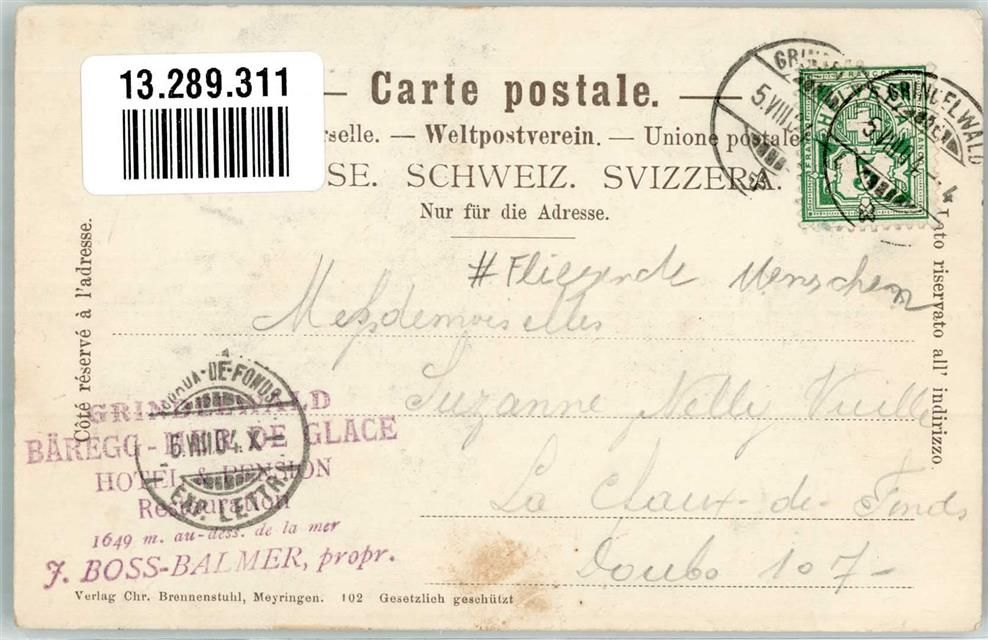 13.289.311
Carte postale.
rselle. — Weltpostverein. — Unione postale
SE. SCHWEIZ. SVIZZERA.
Nur für die Adresse.
GRINDELWALD
5.VIII.
HELVETIA
FRANCO
Côté réservé à l'adresse.
ato riservato all' indirizzo.
#Fliegende Menschen
Messdemoiselles
Suzanne Nelly Vuille
La Chaux-de-Fonds
Doubs 107-
CHAUX-DE-FONDS
6.VIII.04.X-
EXP. LETTR.
GRINDELWALD
BÄREGG-MER DE GLACE
HOTEL & PENSION
Restauration
1649 m. au-dess. de la mer
J. BOSS-BALMER, propr.
Verlag Chr. Brennenstuhl, Meyringen. 102 Gesetzlich geschützt